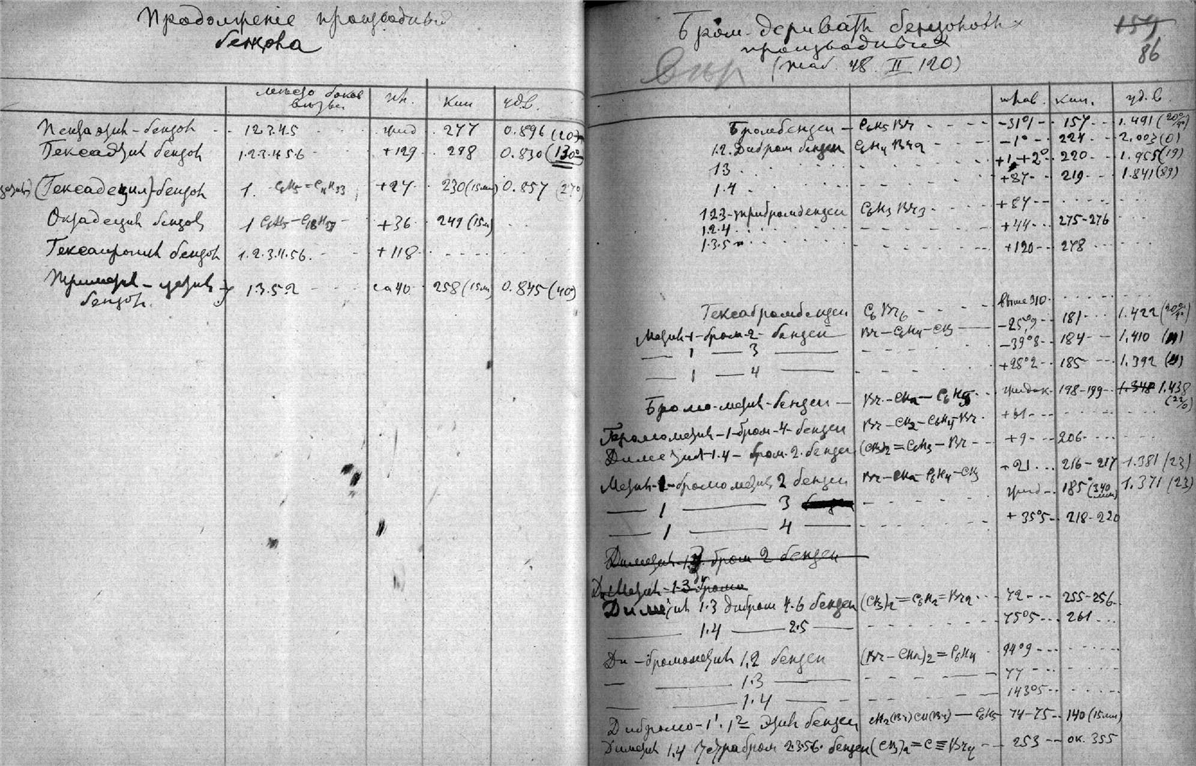 Продолженіе производныя
бензова
место боков
пл.
кип
уд.в.
Пентаэтил-бензол 1.2.3.4.5 жид 277 0.896 (20°)
Гексаэтил бензол 1.2.3.4.5.6 +129 298 0.830 (130°)
(Гексадецил)-бензол 1. +27 230 (15мм) 0.857 (27°)
Октадецил бензол 1 C6H5-C18H37 +36 249 (15м)
Гексапропил бензол 1.2.3.4.5.6. +118
бензол. 1.3.5.2 ca 40 258 (15мм) 0.845 (40)
Бром-дериваты бензоловых
производных
(таб. 48. II 120)
154
86
плав. кип. уд.в
Бромбензен C6H5Br -31°1 157 1.491 (20°)
1.2. Дибром бензен C6H4Br2 -1° 224 2.003 (0)
1.3 +1 +2° 220 1.955 (19)
1.4 +87 219 1.841 (89)
1.2.3-трибромбензен C6H3Br3 +87
1.2.4 +44 275-276
1.3.5 +120 278
Гексабромбензен C6Br6 выше 310
Метил-1-бром-2-бензен Br-C6H4-CH3 -25°9 181 1.422 (20°)
1 3 -39°8 184 1.410
1 4 +28°2 185 1.392
Бромо-метил-бензен Br-CH2-C6H5 жидок 198-199 1.348 1.438 (22°)
Бромометил-1-бром-4-бензен Br-CH2-C6H4-Br +61
Диметил 1.4-бром-2-бензен (CH3)2=C6H3-Br +9 206
Метил-1-бромометил 2 бензен Br-CH2-C6H4-CH3 +21 216-217 1.381 (23)
1 3 жид 185° (340 мм) 1.371 (23)
1 4 +35°5 218-220
Диметил 1.3 бром 2 бензен
Диметил 1.3 бромо
Диметил 1.3 дибром 4.6 бензен (CH3)2=C6H2=Br2 72 255-256
1.4 2.5 75°5 261
Ди-бромометил 1.2 бензен (Br-CH2)2=C6H4 94°9
1.3 77
1.4 143°5
Дибромо-1¹.1² этил бензен CH2(Br)CH(Br)-C6H5 74-75 140 (15мм)
Диметил 1.4 тетрабром 2.3.5.6. бензен (CH3)2=C≡Br4 253 ок. 355